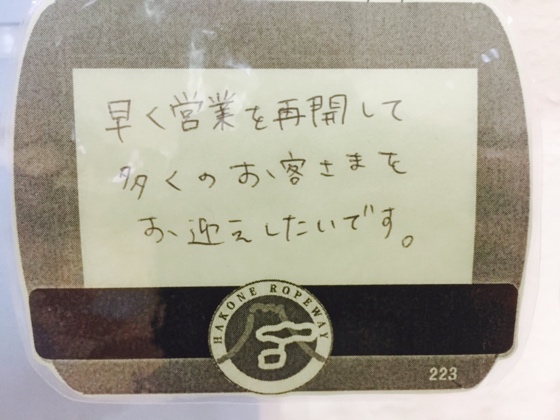 早く営業を再開して
多くのお客さまを
お迎えしたいです。
HAKONE ROPEWAY
223